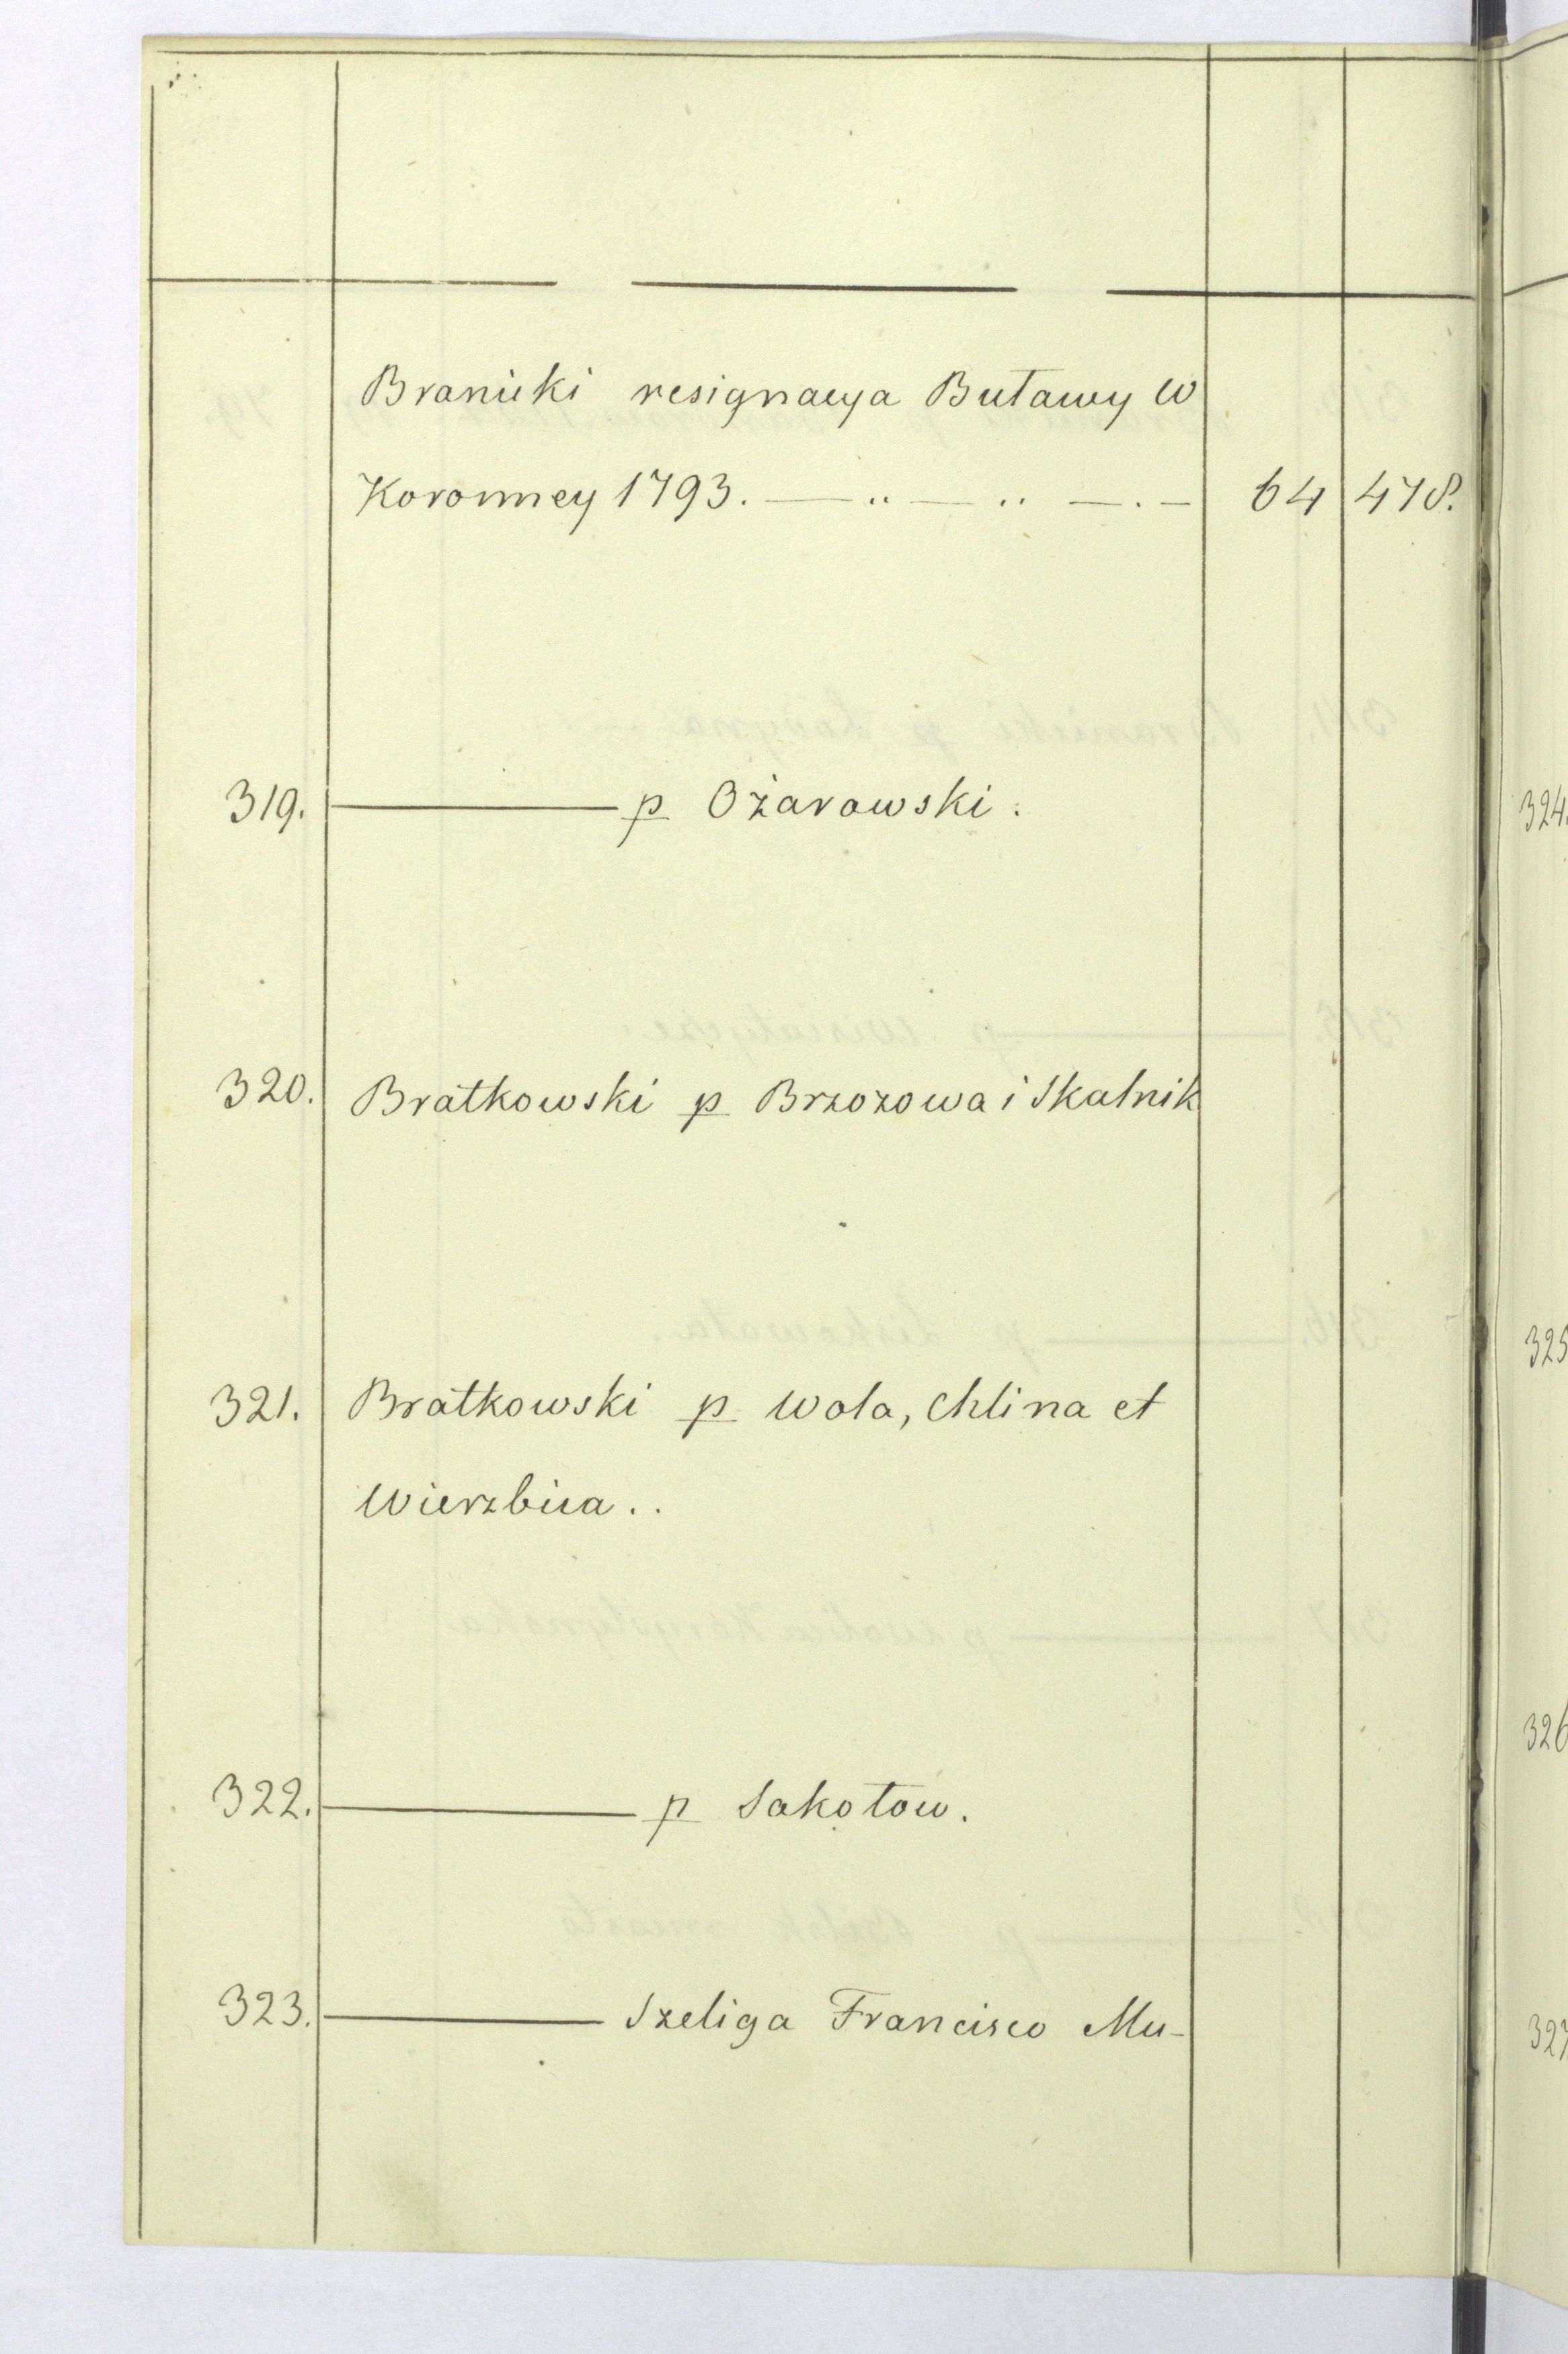 Branicki resignacya Buławy W
Koronney 1793. — " — " — . — 64 478.
319. ——— p Ożarowski.
320. Bratkowski p Brzozowa i Skalnik
321. Bratkowski p Wola, Chlina et
Wierzbica..
322. ——— p Sokołow.
323. ——— Szeliga Francisco Mu-
324.
325
326
327